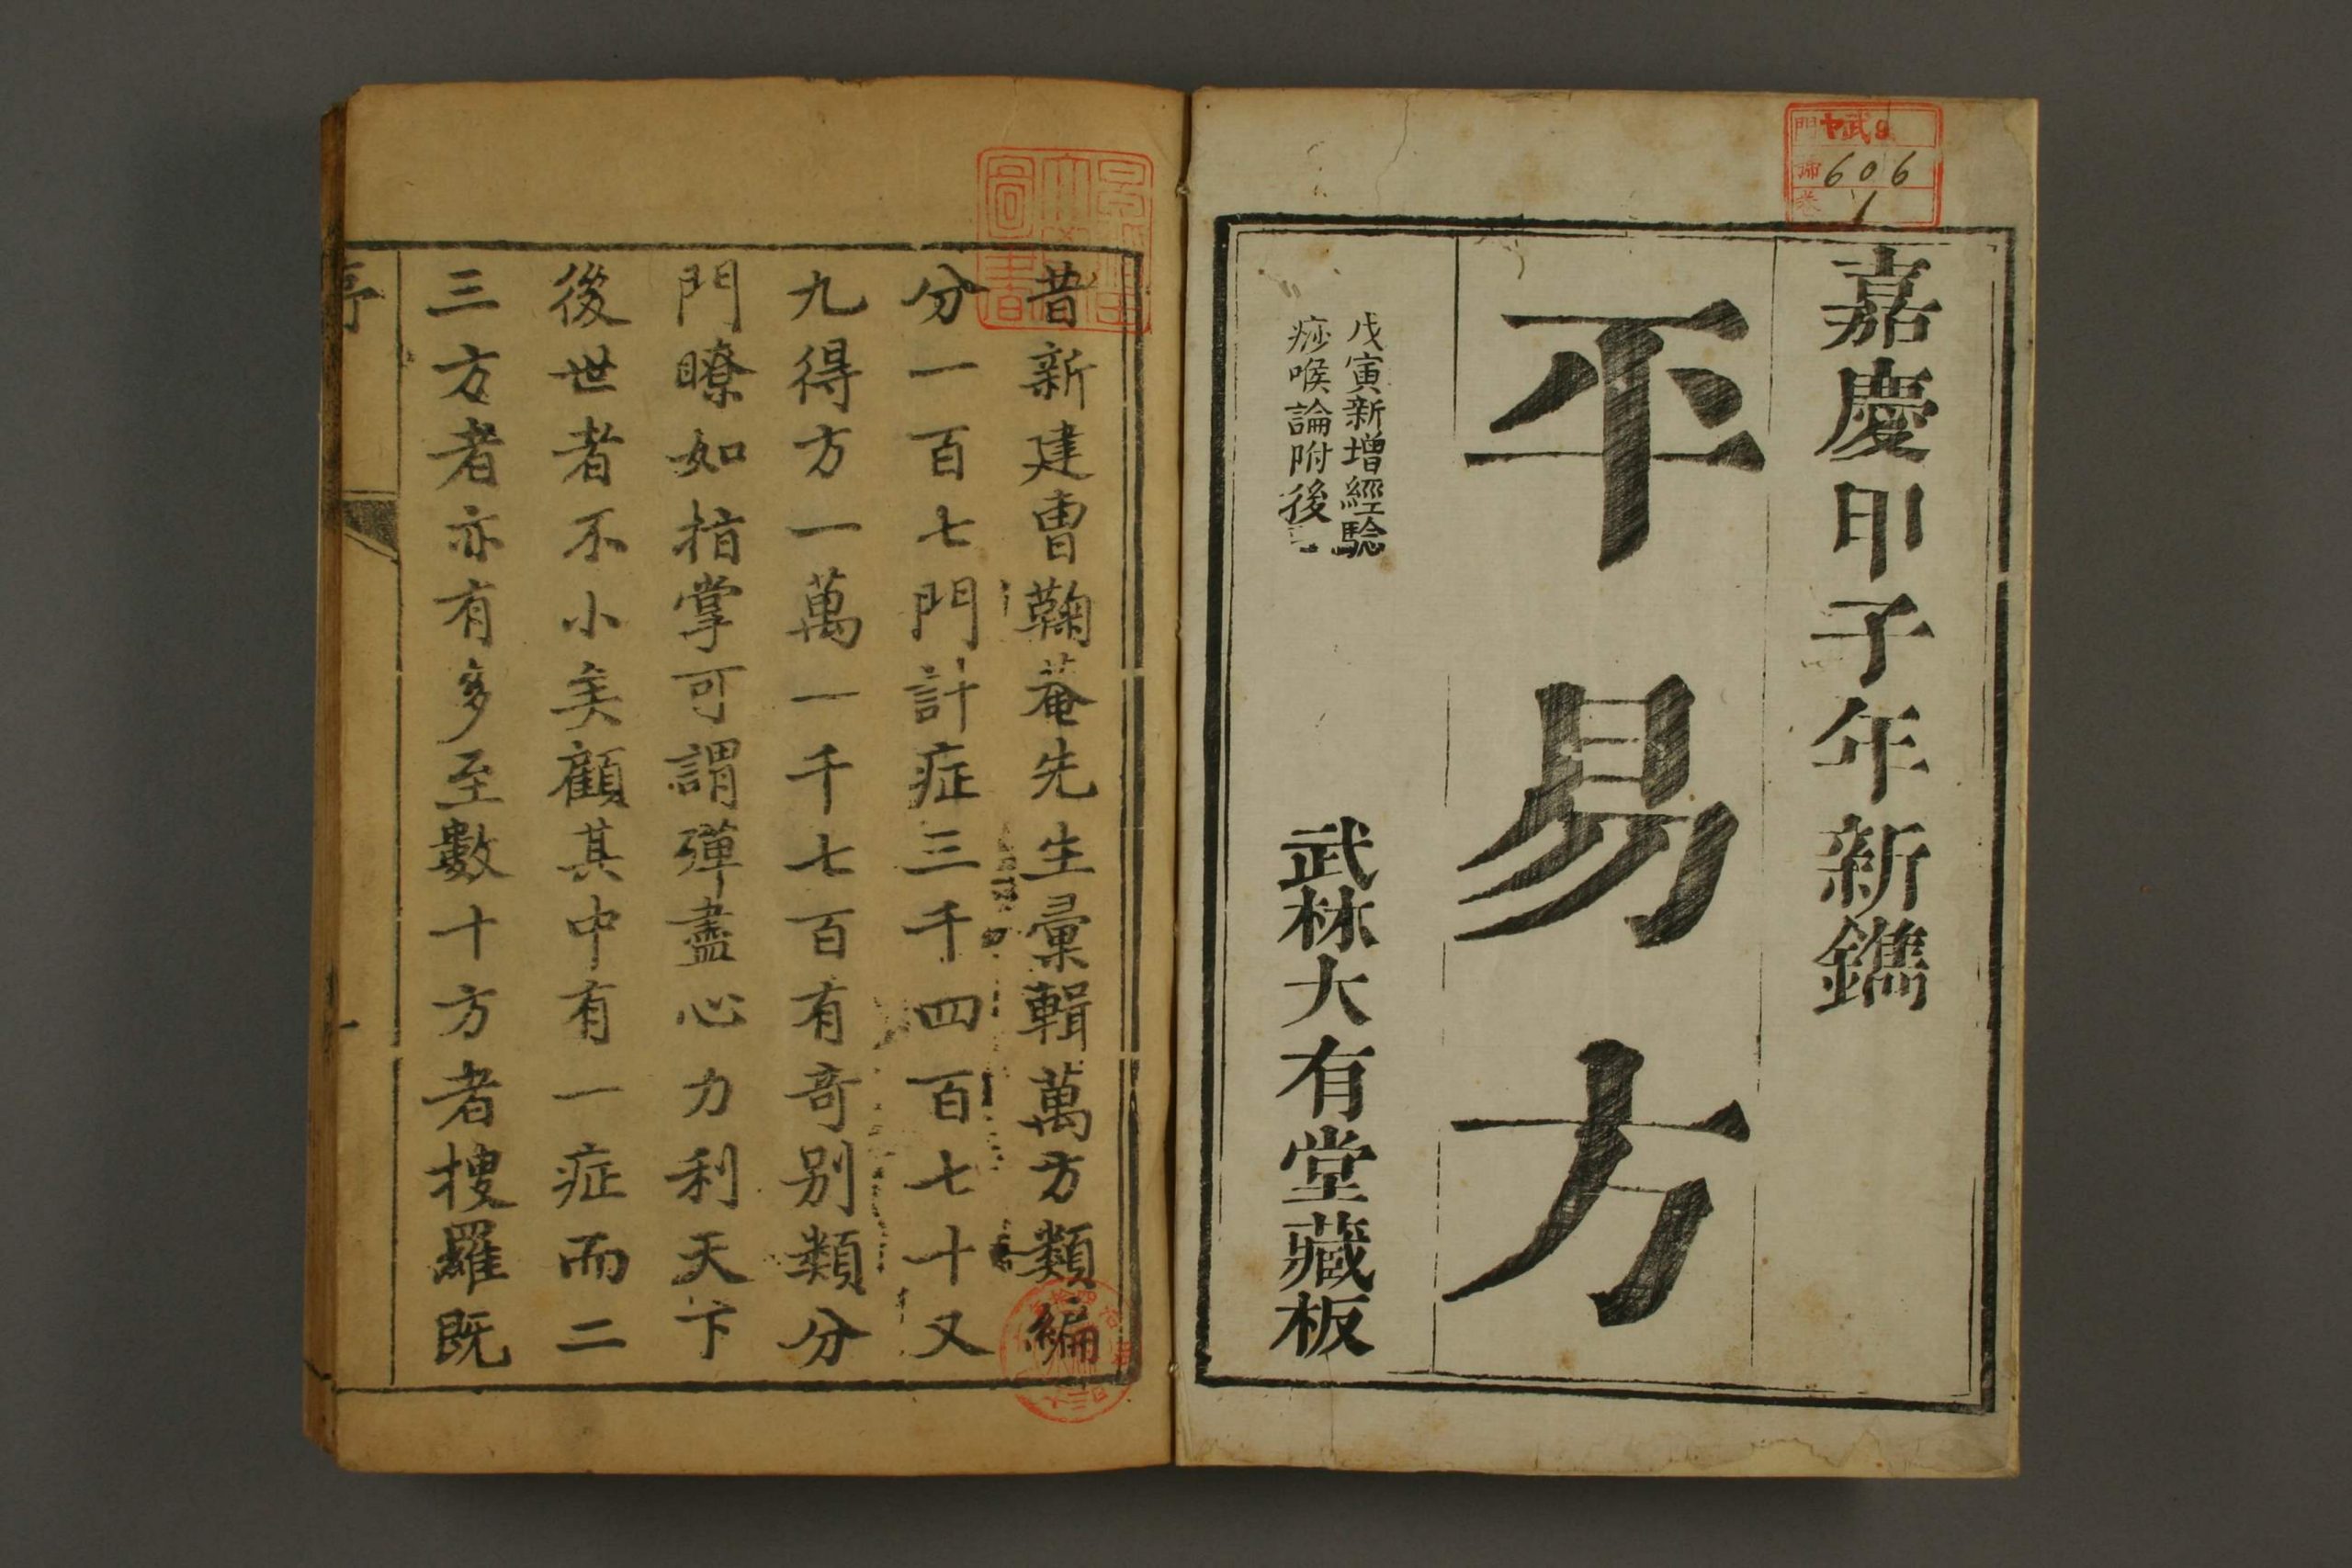 嘉慶甲子年新鐫
平易方
戊寅新增經驗
痧喉論附後
武林大有堂藏板
門
606
卷 1
昔新建曹鞠菴先生彙輯萬方類編
分一百七門計症三千四百七十又
九得方一萬一千七百有奇别類分
門瞭如指掌可謂殫盡心力利天卞
後世者不小矣顧其中有一症而二
三方者亦有多至數十方者搜羅既
序
一